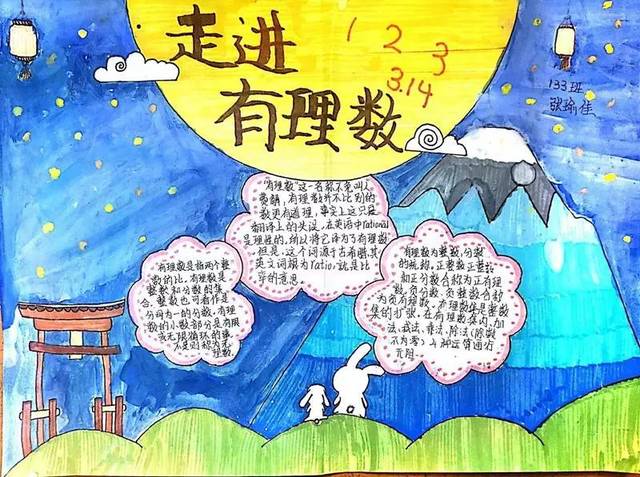 走进
有理数
1 2 3
3.14
133班
张瑜佳
"有理数"这一名称不免叫人
费解,有理数并不比别的
数更有道理,事实上这只是
翻译上的失误,在英语中rational
是理性的,所以将它译为了有理数
但是,这个词源于古希腊,其
英文词根为ratio,就是比
率的意思
有理数是指两个整
数的比,有理数是
整数和分数的集
合,整数也可看作是
分母为一的分数,有理
数的小数部分是有限
或无限循环的数
不是则称为无
理数,
有理数为整数,分数
的统称,正整数正整数
和正分数合称为正有理
数,负分数,负整数合称
为负有理数,有理数集是整数
集的扩张,在有理数集内,加
法,减法,乘法,除法(除数
不为零)4种运算通行
无阻,